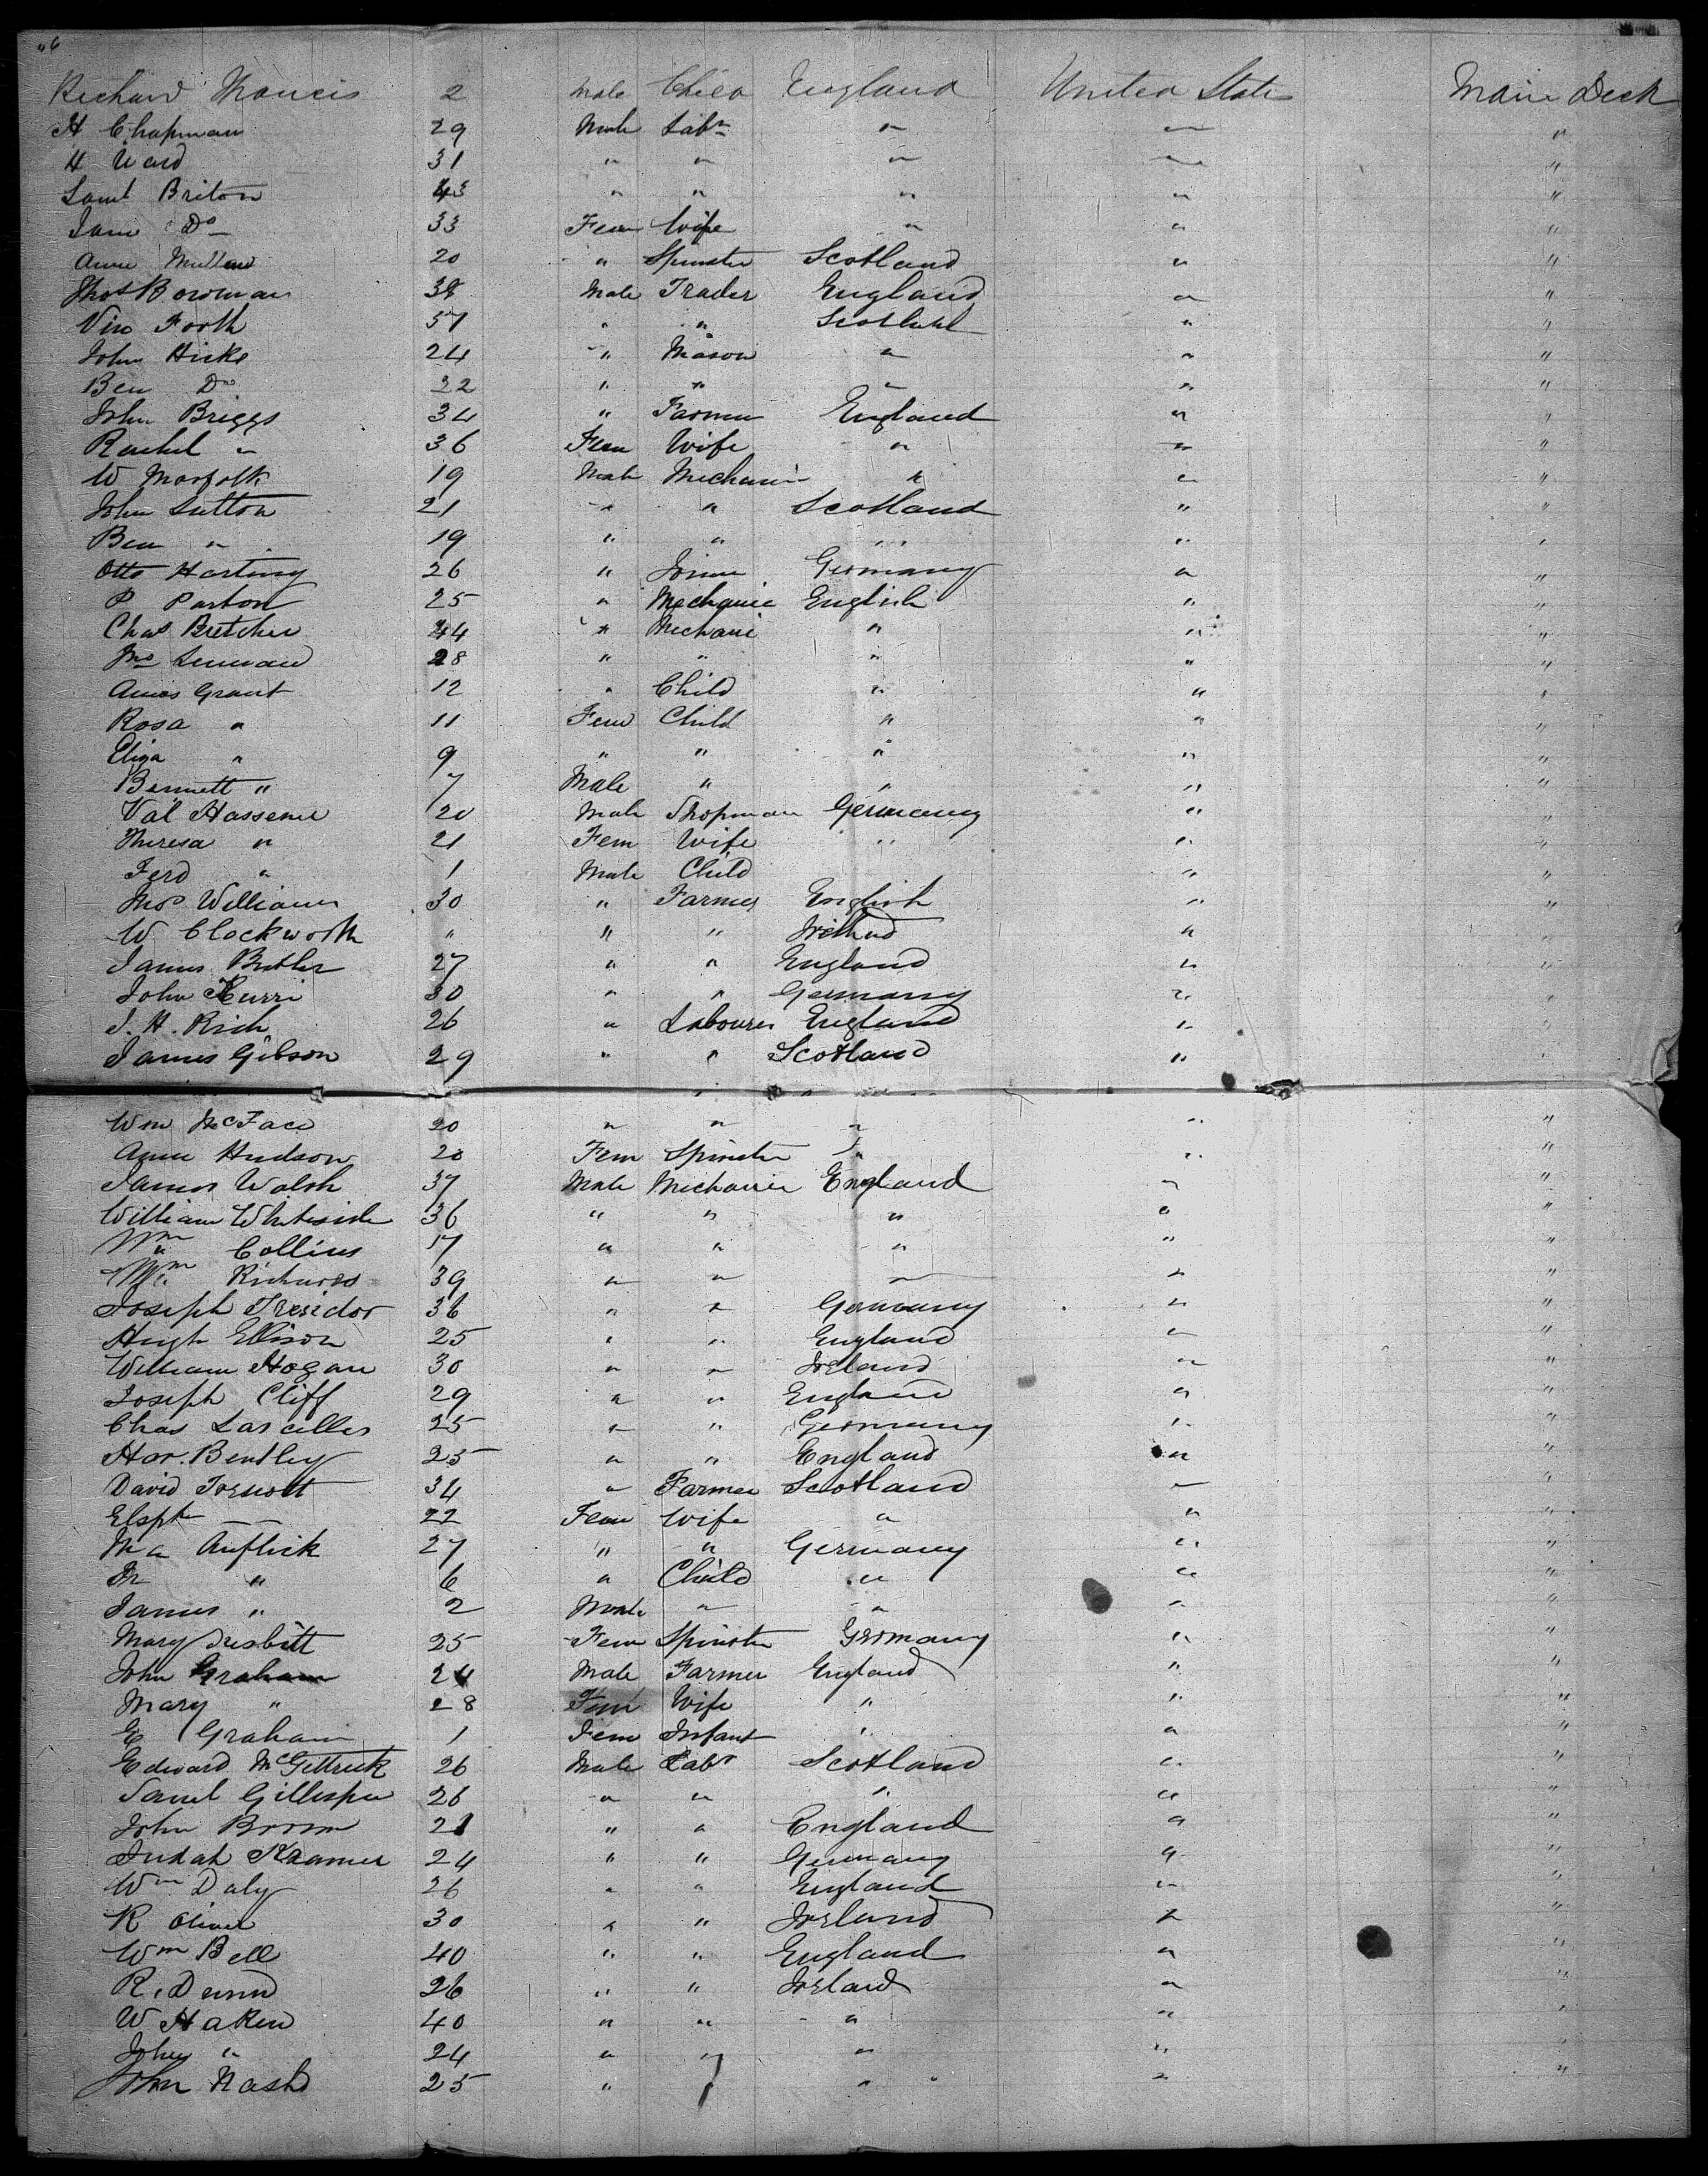 "6
Richard Francis 2 Male Child England United State Main Deck
H Chapman 29 Male Labr " " "
H Ward 31 " " " " "
Saml Briton 43 " " " " "
Jane Do 33 Fem Wife " " "
Anne 20 " Spinster Scotland " "
Thos Bowman 38 Male Trader England " "
Forth 57 " " Scotland " "
John Hicks 24 " Mason " " "
Ben Do 22 " " " " "
John Briggs 34 " Farmer England " "
Rachel " 36 Fem Wife " " "
W Morfolk 19 Male Mechanic " " "
John Sutton 21 " " Scotland " "
Ben " 19 " " " " "
Otto Hartung 26 " Joiner Germany " "
P Parton 25 " Mechanic English " "
Chas Bretcher 44 " Mechani " " "
28 " " " " "
Amos Grant 12 " Child " " "
Rosa " 11 Fem Child " " "
Eliza " 9 " " " " "
Bennett " 7 Male " " " "
Val Hassemer 20 Male Shopman Germany " "
Theresa " 21 Fem Wife " " "
Ferd " 1 Male Child " "
Thos Williams 30 " Farmer English " "
W Clockworth " " " " "
James Butler 27 " " England " "
John Kurri 30 " " Germany " "
J. H. Rich 26 " Labourer England " "
James Gibson 29 " " Scotland " "
Wm McFace 20 " " " " "
Anne Hudson 20 Fem Spinster " " "
James Walsh 37 Male Mechanic England " "
William Whiteside 36 " " " " "
Wm Collins 17 " " " " "
Wm Richards 39 " " " " "
Joseph Tresidor 36 " " Germany " "
Hugh Ellison 25 " " England " "
William Hogan 30 " " Ireland " "
Joseph Cliff 29 " " England " "
Chas Lascelles 25 " " Germany " "
Har. Bentley 25 " " England " "
David 34 " Farmer Scotland " "
Elspt — 22 Fem Wife " " "
Ma Auflick 27 " " Germany " "
M " 6 " Child " " "
James " 2 Male " " " "
Mary Nesbitt 25 Fem Spinster Germany " "
John Graham 24 Male Farmer England " "
Mary " 28 Fem Wife " " "
E Graham 1 Fem Infant " " "
Edward McGettrick 26 Male Labr Scotland " "
Saml Gillespie 26 " " " " "
John Broom 21 " " England " "
Judah Kramer 24 " " Germany " "
Wm Daly 26 " " England " "
R Oliver 30 " " Ireland " "
Wm Bell 40 " " England " "
R. Dunn 26 " " Ireland " "
W Haken 40 " " " " "
John " 24 " " " " "
John Nash 25 " " " " "